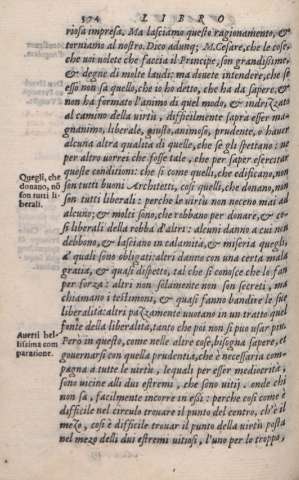 374 LIBRO
riosa impresa. Ma lasciamo questo ragionamento, &
torniamo al nostro. Dico adunq; M. Cesare, che le cose,
che uoi uolete che faccia il Principe, son grandissime,
& degne di molte laudi: ma douete intendere, che se
esso non sa quello, che io ho detto, che ha da sapere, &
non ha formato l'animo di quel modo, & indrizzato
al camino della virtù, difficilmente saprà esser ma-
gnanimo, liberale, giusto, animoso, prudente, o hauer
alcuna altra qualità di quelle, che se gli spettano: ne
per altro vorrei che fosse tale, che per saper esercitar
queste conditioni: che si come quelli, che edificano, non
Quegli, che
donano, nō
son tutti li-
berali.
son tutti buoni Architetti, cosi quelli, che donano, non
son tutti liberali: perche la virtù non noceno mai ad
alcuno; & molti sono, che robbano per donare, & co-
si liberali della robba d'altri: alcuni danno a cui non
debbono, & lasciano in calamità, & miseria quegli,
a' quali sono obligati: altri danno con una certa mala
gratia, & quasi dispetto, tal che si conosce che lo fan
per forza: altri non solamente non son secreti, ma
chiamano i testimoni, & quasi fanno bandire le sue
liberalità: altri pazzamente uuotano in un tratto quel
fonte della liberalità, tanto che poi non si puo usar piu.
Auerti bel-
lissima com
paratione.
Però in questo, come nelle altre cose, bisogna sapere, et
gouernarsi con quella prudentia, che è necessaria com-
pagna a tutte le virtù, lequali per esser mediocrità,
sono uicine alli dui estremi, che sono uitij. onde chi
non sa, facilmente incorre in essi: perche cosi come è
difficile nel circulo trouare il punto del centro, ch'è il
mezo, cosi è difficile trouar il punto della virtù posta
nel mezo delli dui estremi uitiosi, l'uno per lo troppo,